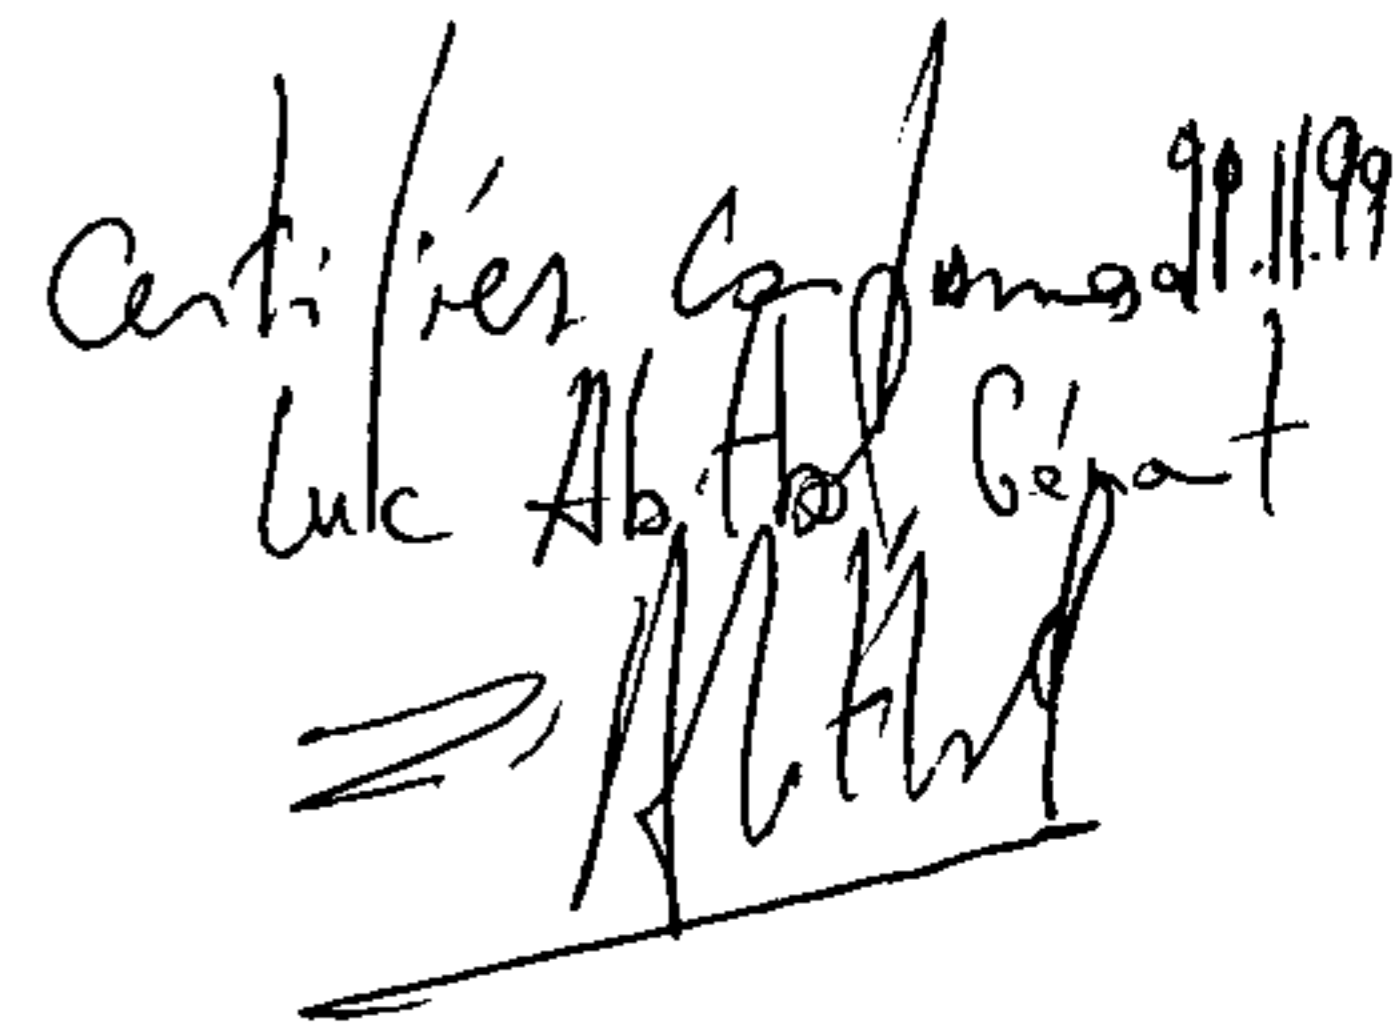 Certifiés Conformes
Luc Abitbol Gérant